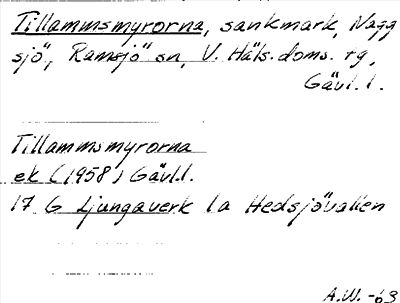 Tillammsmyrorna, sankmark, Nagg
sjö, Ramsjö sn, V. Häls. doms. tg,
Gävl. l.
Tillammsmyrorna
ek (1958) Gävl.l.
17 G Ljungaverk 1a Hedsjövallen
A.W. -63